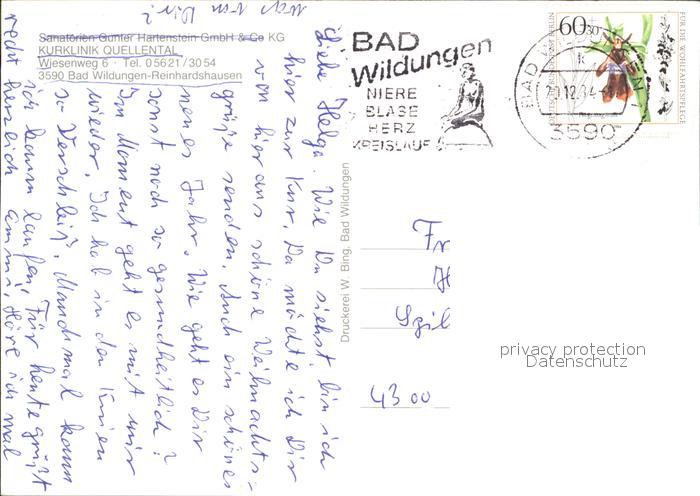 Sanatorien Günter Hartenstein GmbH & Co KG
KURKLINIK QUELLENTAL
Wiesenweg 6 · Tel. 05621/3054
3590 Bad Wildungen-Reinhardshausen
Liebe Helga. Wie Du siehst, bin ich
hier zur Kur. Da möchte ich Dir
von hier aus schöne Weihnachts-
grüße senden. Auch ein schönes
neues Jahr. Wie geht es Dir
sonst noch so gesundheitlich?
Im Moment geht es mit mir
wieder. Ich hab in den Knien
so Verschleiß. Manchmal kann
ich kaum laufen. Für heute grüßt
recht herzlich Emmi. Höre ich mal
was von Dir?
Druckerei W. Bing, Bad Wildungen
BAD
Wildungen
NIERE
BLASE
HERZ
KREISLAUF
BAD
20.12.84
3590
60+30
FÜR DIE WOHLFAHRTSPFLEGE
BERLIN
Fr
H
4300
privacy protection
Datenschutz